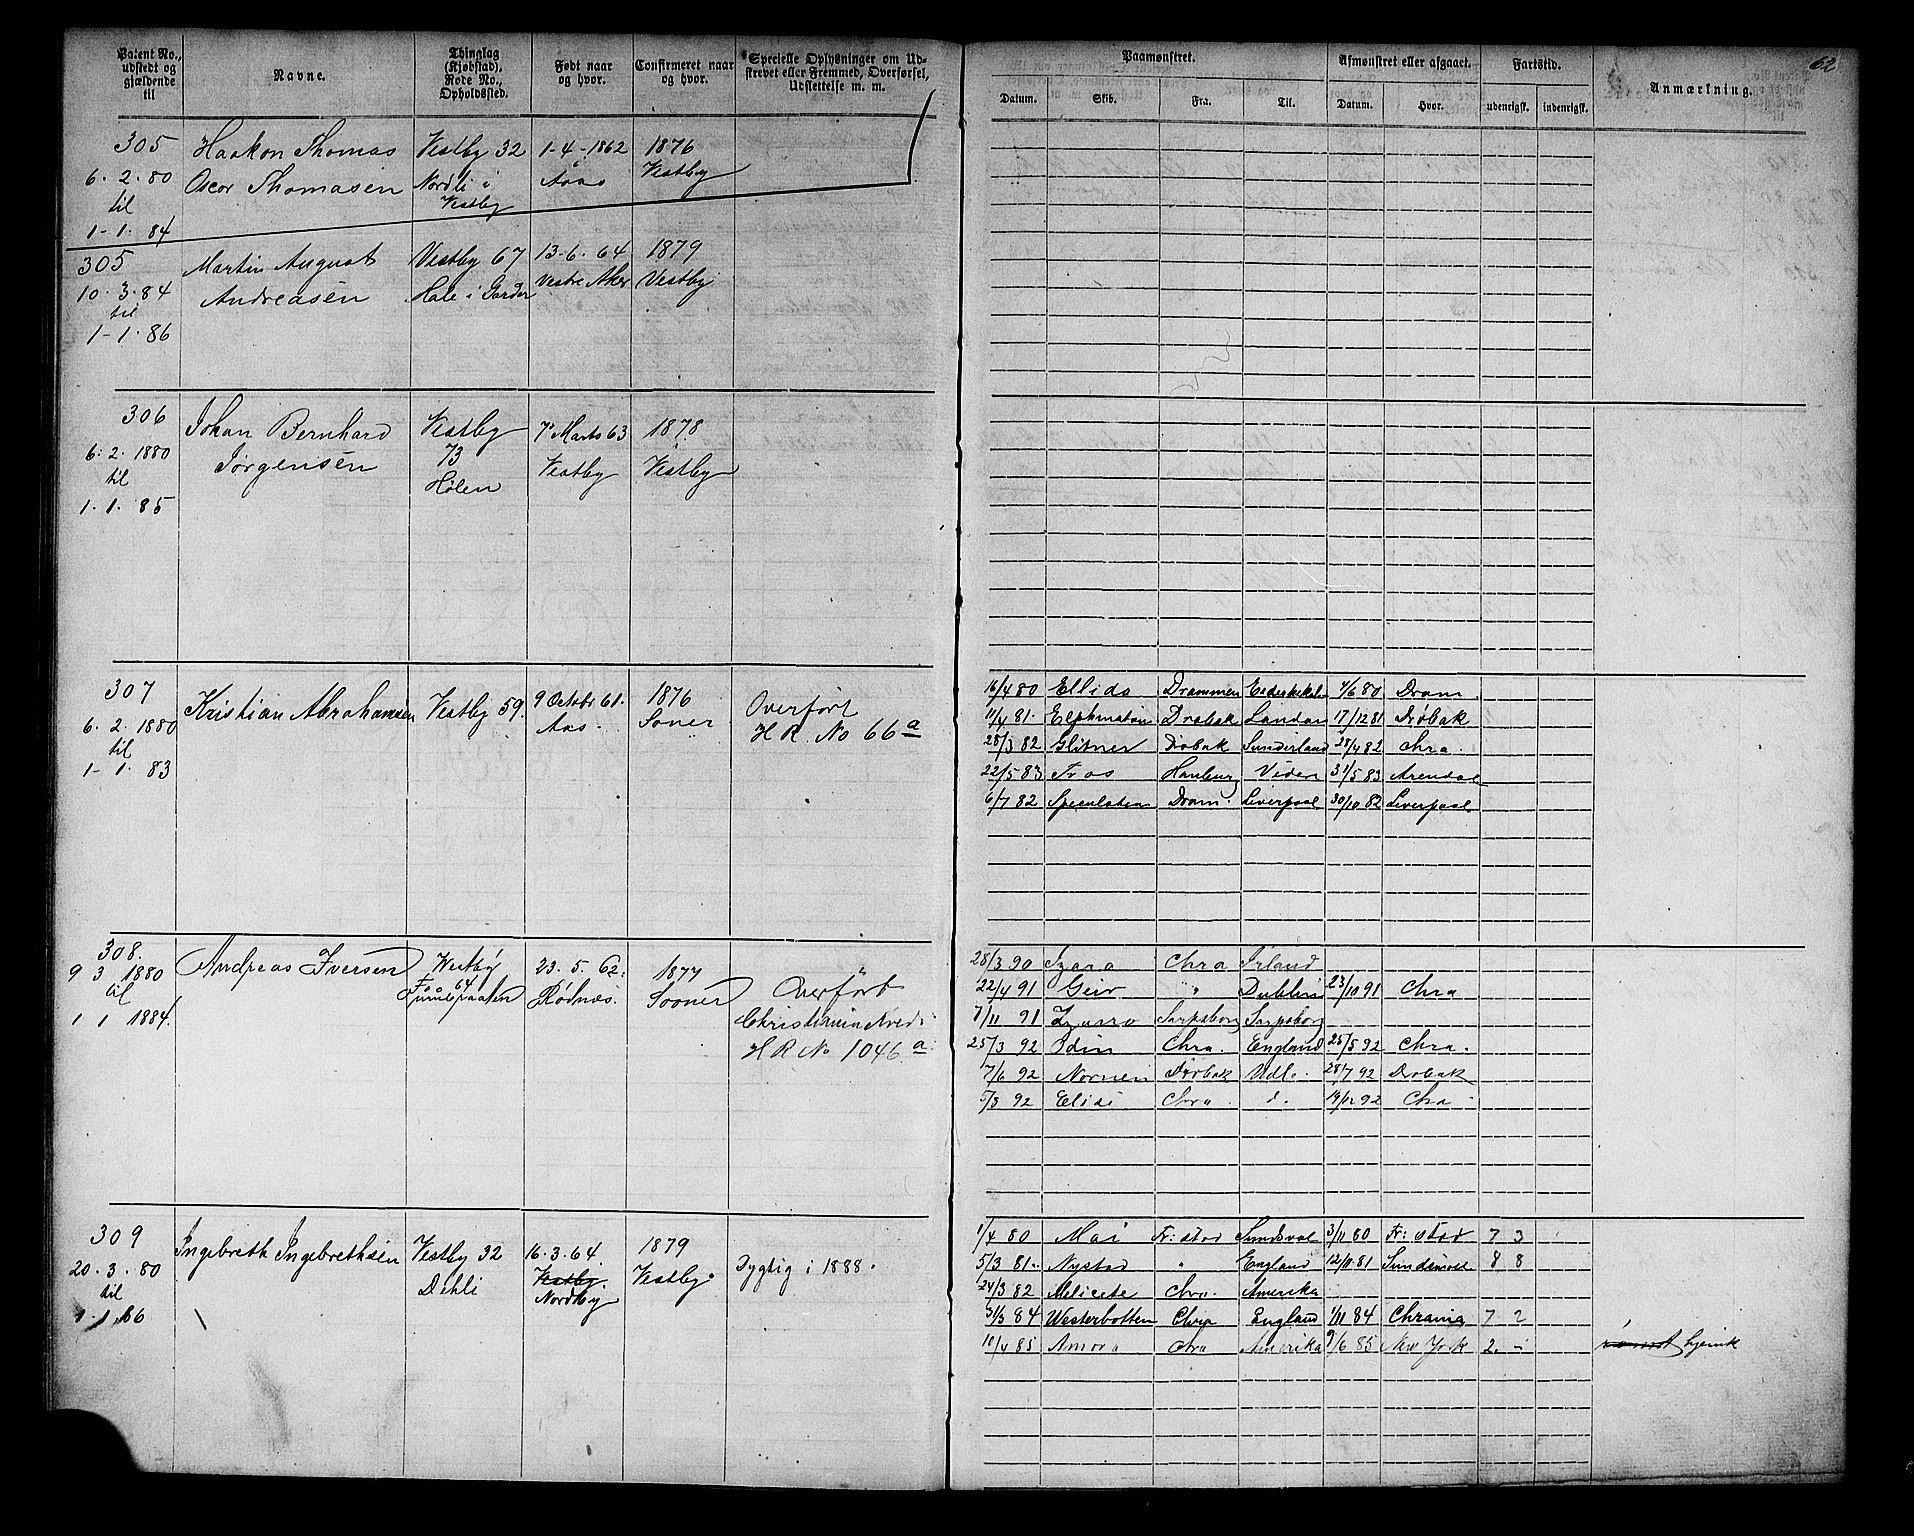 62
Patent No., udstedt og gjældende til
Navne.
Thinglag (Kjøbstad), Rode No., Opholdssted.
Født naar og hvor.
Confirmeret naar og hvor.
Specielle Oplysninger om Udstrevet eller Fremmed, Overførsel, Udslettelse m. m.
Paamønstret.
Afmønstret eller afgaaet.
Fartstid.
Anmærkning.
Datum. Skib. Fra. Til. Datum. Hvor. udenrigsk. indenrigsk.
305 Haakon Thomas Vestby 32 1-4-1862 1876
6. 2. 80 Oscar Thomasen Nordli i Aaas Vestby
til Vestby
1-1. 84
305 Martin August Vestby 67 13-6. 64 1879
10. 3. 84 Andreasen Hole i Garder Vestre Aker Vestby
til
1-1. 86
306 Johan Bernhard Vestby 7' Marts 63 1878
6. 2. 1880 Jørgensen 73 Vestby Vestby
til Hølen
1. 1. 85
307 Kristian Abrahamsen Vestby 59. 9 Octobr 61. 1876 Overført
6. 2. 1880 Aas Soner H R. No 66a
til
1-1. 83
16/4 80 Ellida Drammen /6 80 Dram.
11/4 81. Drøbak London 17/12 81 Drøbak
28/3 82 Glitner Drøbak Sunderland 28/4 82 Chra.
22/5 83 Tros Hamburg 31/5 83 Arendal
6/7 82 Speculation Dram. Liverpool 30/10 82 Liverpool
308. Andreas Iversen Vestby 23. 5. 62. 1877 Overført
9 3 1880 64 Rødnes. Sooner Christiania
til H R No 1046a
1 1 1884.
28/3 90 Chra Irland
22/4 91 Geir " Dublin 23/10 91 Chra
7/11 91 Sarpsborg Sarpsborg
25/3 92 Odin Chra. England 25/5 92 Chra.
7/6 92 Nornen Drøbak Udl. 28/7 92 Drøbak
5/3 92 Elisi Chra. d. 14/12 92 Chra
309 Ingebreth Ingebrethsen Vestby 32 16. 3. 64 1879 Dygtig i 1888.
20. 3. 80 Dehli Vestby Vestby
til Nordby
1. 1. 86
1/4 80 Mai Fr: stad Sundsval 3/11 80 Fr: stad 7 3
5/3 81. Nystad " England 12/11 81 8 8
24/3 82 Chra. Amerika
31/3 84 Westerbotten Chra England 1/11 84 Chrania 7 2
10/4 85 Amora Chra Amerika 9/6 85 New York 2. - rømt hjemk